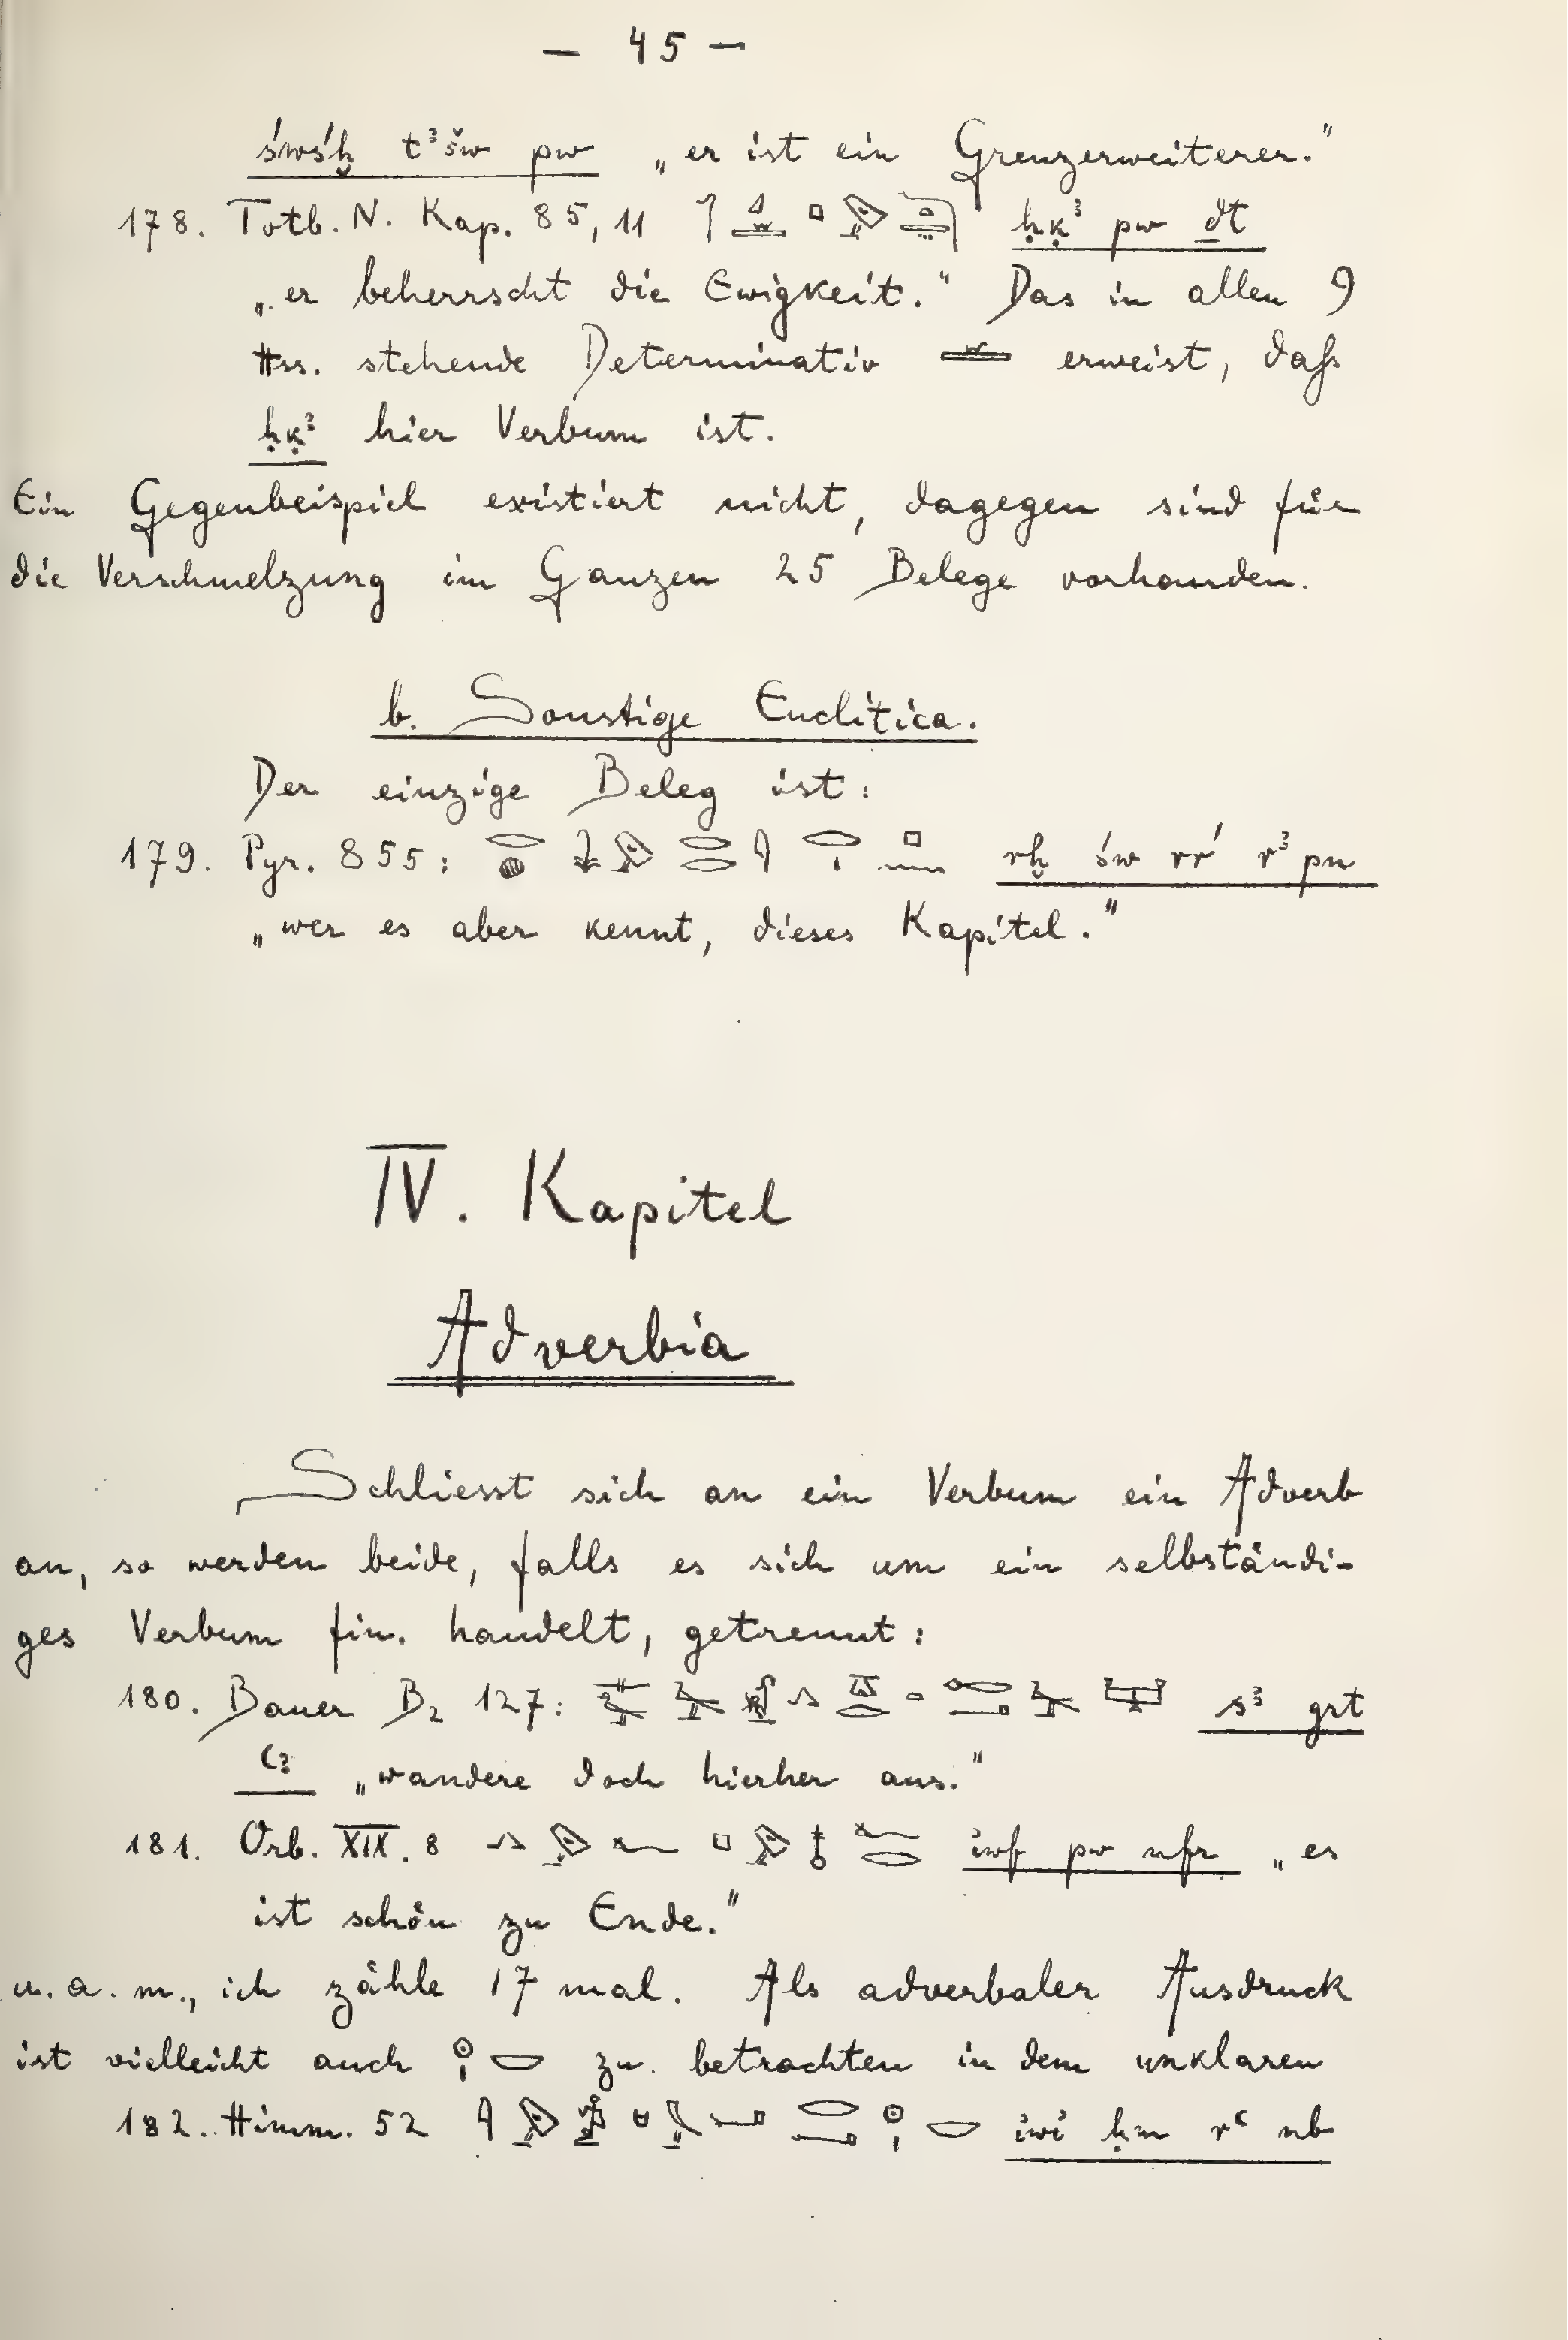 — 45 —
śwśḫ tꜣšw pw „er ist ein Grenzerweiterer."
178. Totb. N. Kap. 85, 11 ḥḳꜣ pw ḏt
„er beherrscht die Ewigkeit." Das in allen 9
Hss. stehende Determinativ erweist, daß
ḥḳꜣ hier Verbum ist.
Ein Gegenbeispiel existiert nicht, dagegen sind für
die Verschmelzung im Ganzen 25 Belege vorhanden.
b. Sonstige Enclitica.
Der einzige Beleg ist:
179. Pyr. 855: rḫ św rrʾ rꜣ pn
„wer es aber kennt, dieses Kapitel."
IV. Kapitel
Adverbia
Schliesst sich an ein Verbum ein Adverb
an, so werden beide, falls es sich um ein selbständi-
ges Verbum fin. handelt, getrennt:
180. Bauer B₂ 127: sꜣ grt
ꜥꜣ „wandere doch hierher aus."
181. Orb. XIX. 8 iwf pw nfr „es
ist schön zu Ende."
u. a. m., ich zähle 17 mal. Als adverbaler Ausdruck
ist vielleicht auch zu betrachten in dem unklaren
182. Himm. 52 ꞽwꞽ ḥm rꜥ nb